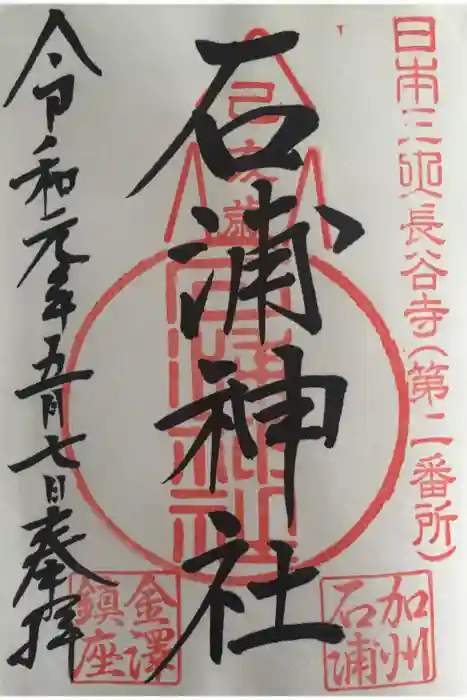 日本三処長谷寺(第二番所)
石浦神社
令和元年五月七日奉拝
加州
石浦
金澤
鎮座
石浦神社